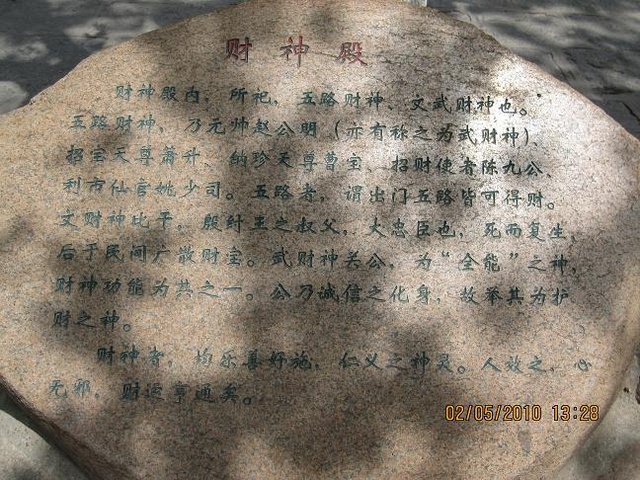 财神殿
财神殿内，所祀，五路财神、文武财神也。
五路财神，乃元帅赵公明（亦有称之为武财神）、
招宝天尊萧升、纳珍天尊曹宝、招财使者陈九公、
利市仙官姚少司。五路者，谓出门五路皆可得财。
文财神比干，殷纣王之叔父，大忠臣也，死而复生，
后于民间广散财宝。武财神关公，为“全能”之神，
财神功能为其之一。公乃诚信之化身，故举其为护
财之神。
财神者，均乐善好施，仁义之神灵。人效之，心
无邪，财运亨通矣。
02/05/2010 13:28